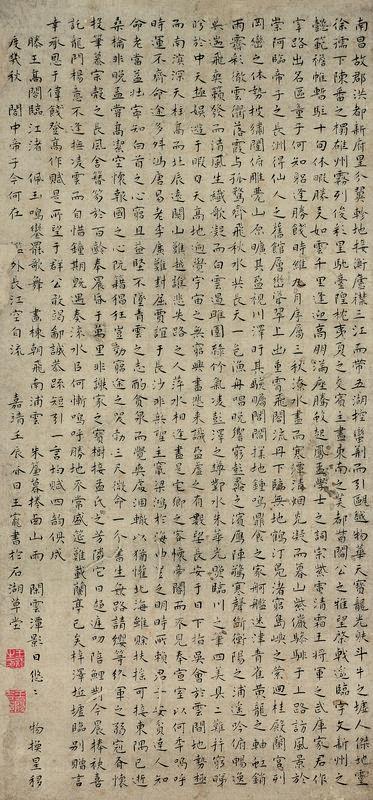 南昌故郡洪都新府星分翼軫地接衡廬襟三江而帶五湖控蠻荊而引甌越物華天寶龍光射斗牛之墟人傑地靈
徐孺下陳蕃之榻雄州霧列俊彩星馳臺隍枕夷夏之交賓主盡東南之美都督閻公之雅望棨戟遙臨宇文新州之
懿範襜帷暫駐十旬休暇勝友如雲千里逢迎高朋滿座騰蛟起鳳孟學士之詞宗紫電清霜王將軍之武庫家君作
宰路出名區童子何知躬逢勝餞時維九月序屬三秋潦水盡而寒潭清烟光凝而暮山紫儼驂騑於上路訪風景於
崇阿臨帝子之長洲得仙人之舊館層巒聳翠上出重霄飛閣流丹下臨無地鶴汀鳧渚窮島嶼之縈迴桂殿蘭宮列
岡巒之體勢披繡闥俯雕甍山原曠其盈視川澤盱其駭矚閭閻撲地鐘鳴鼎食之家舸艦迷津青雀黃龍之軸虹銷
雨霽彩徹雲衢落霞與孤鶩齊飛秋水共長天一色漁舟唱晚響窮彭蠡之濱鴈陣驚寒聲斷衡陽之浦遙吟俯暢逸
興遄飛爽籟發而清風生纖歌凝而白雲遏睢園綠竹氣凌彭澤之樽鄴水朱華光照臨川之筆四美具二難并窮睇
眄於中天極娛遊于暇日天高地迥覺宇宙之無窮興盡悲來識盈虛之有數望長安于日下指吳會於雲間地勢極
而南溟深天柱高而北辰遠關山難越誰悲失路之人萍水相逢盡是它鄉之客懷帝閽而不見奉宣室以何年嗚呼
時運不齊命途多舛馮唐易老李廣難封屈賈誼于長沙非無聖主竄梁鴻於海曲豈乏明時所賴君子安貧達人知
命老當益壯寧知白首之心窮且益堅不墜青雲之志酌貪泉而覺爽處涸轍以猶懽北海雖賒扶搖可接東隅已逝
桑榆非晚孟嘗高潔空懷報國之心阮籍猖狂豈效窮途之哭勃三尺微命一介書生無路請纓等終軍之弱冠有懷
投筆慕宗愨之長風舍簪笏於百齡奉晨昏于萬里非謝家之寶樹接孟氏之芳隣它日趨庭叨陪鯉對今晨捧袂喜
託龍門楊意不逢撫凌雲而自惜鍾期既遇奏流水以何慚嗚呼勝地不常盛筵難載蘭亭已矣梓澤丘墟臨別贈言
幸承恩于偉餞登高作賦是所望于群公敢竭鄙誠恭疏短引一言均賦四韻俱成
滕王高閣臨江渚 佩玉鳴鑾罷歌舞 畫棟朝飛南浦雲 朱簾暮捲西山雨 閒雲潭影日悠〻 物換星移
度幾秋 閣中帝子今何在 檻外長江空自流 嘉靖壬辰春日王寵書於石湖草堂